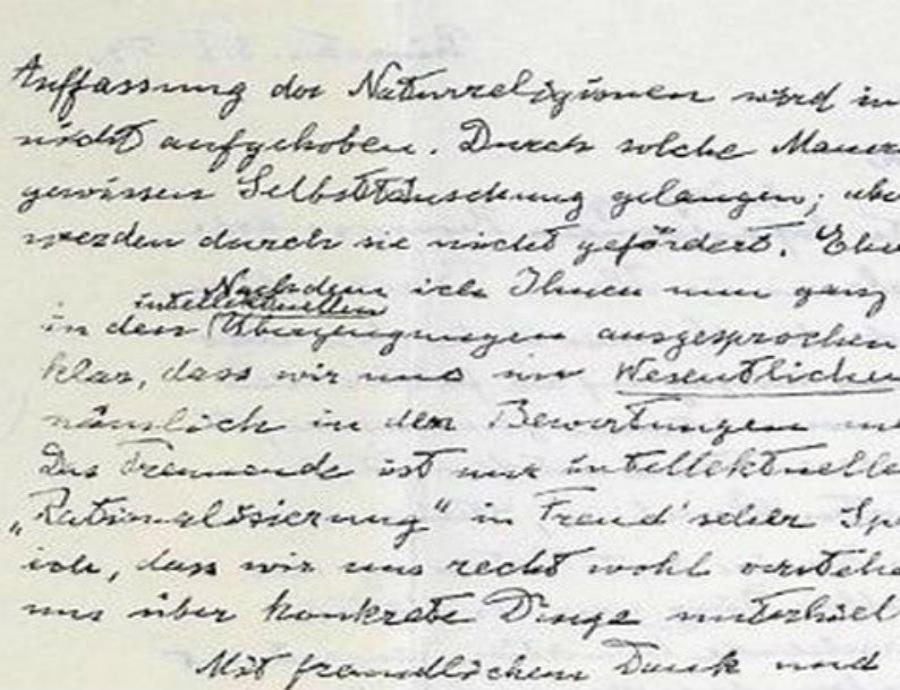 Auffassung der Naturreligionen wird in
nicht aufgehoben. Durch solche Mauer
gewissen Selbsttäuschung gelangen; abe
werden durch sie nicht gefördert. Ehe
Nachdem ich Ihnen nun ganz
intellektuellen
in den Überzeugungen ausgesprochen
klar, dass wir uns im Wesentlichen
nämlich in den Bewertungen me
Das Trennende ist nur intellektuelle
„Rationalisierung“ in Freud'scher Sp
ich, dass wir uns recht wohl verstehe
uns über konkrete Dinge unterhiel
Mit freundlichem Dank und